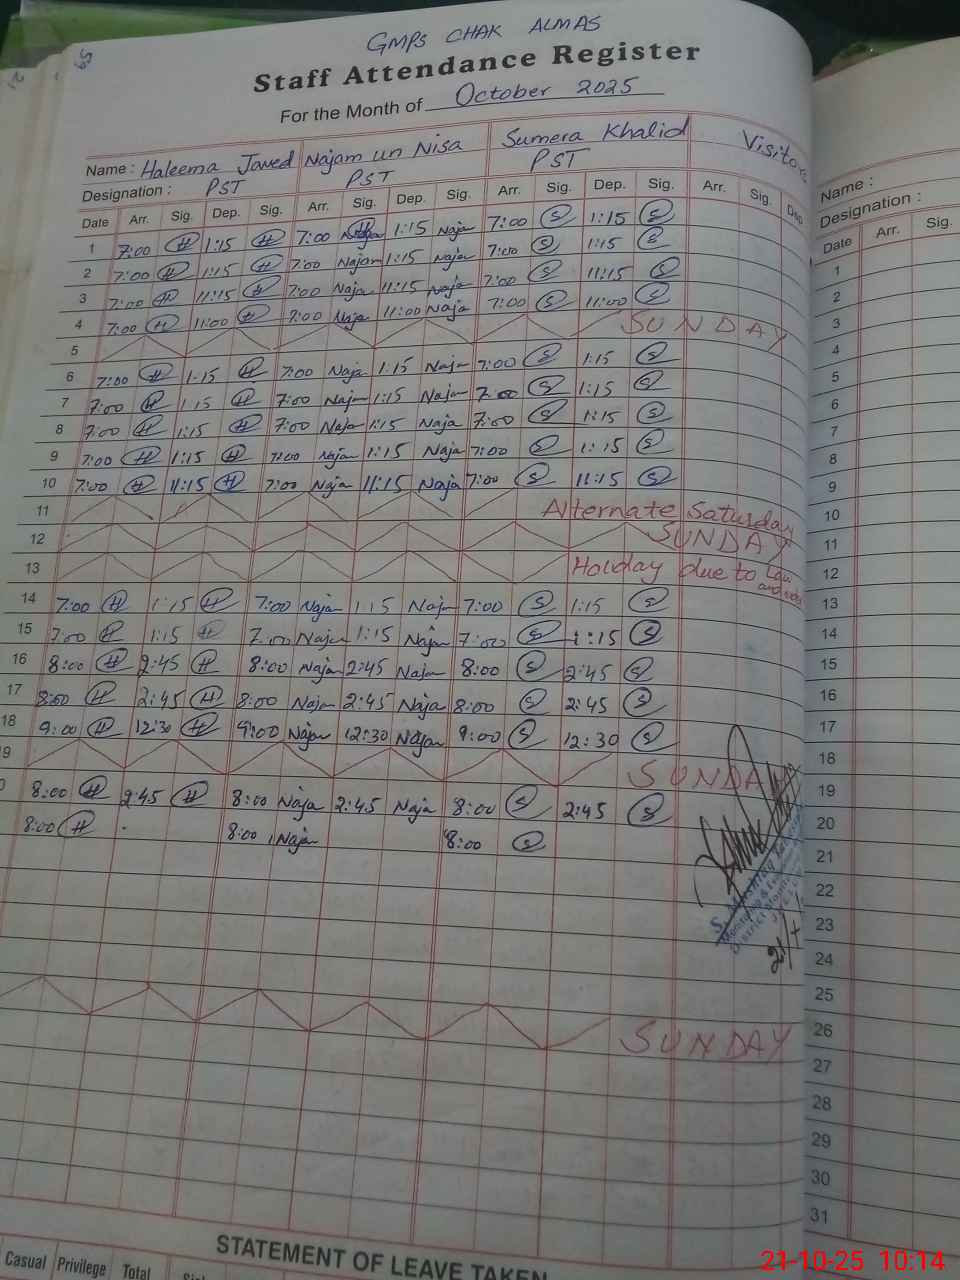 GMPS CHAK ALMAS
Staff Attendance Register
For the Month of October 2025
Name : Haleema Javed Najam un Nisa Sumera Khalid Visitors
Designation : PST PST PST
Date Arr. Sig. Dep. Sig. Arr. Sig. Dep. Sig. Arr. Sig. Dep. Sig. Arr. Sig. Dep
1 7:00 H 1:15 H 7:00 1:15 Naja 7:00 S 1:15 S
2 7:00 H 1:15 H 7:00 Najam 1:15 Naja 7:00 S 1:15 S
3 7:00 H 11:15 H 7:00 Naja 11:15 Naja 7:00 S 11:15 S
4 7:00 H 11:00 H 7:00 Naja 11:00 Naja 7:00 S 11:00 S
5 SUNDAY
6 7:00 H 1:15 H 7:00 Naja 1:15 Naja 7:00 S 1:15 S
7 7:00 H 1:15 H 7:00 Naja 1:15 Naja 7:00 S 1:15 S
8 7:00 H 1:15 H 7:00 Naja 1:15 Naja 7:00 S 1:15 S
9 7:00 H 1:15 H 7:00 Naja 1:15 Naja 7:00 S 1:15 S
10 7:00 H 11:15 H 7:00 Naja 11:15 Naja 7:00 S 11:15 S
11 Alternate Saturday
12 SUNDAY
13 Holiday due to Law and
14 7:00 H 1:15 H 7:00 Naja 1:15 Naja 7:00 S 1:15 S
15 7:00 H 1:15 H 7:00 Naja 1:15 Naja 7:00 S 1:15 S
16 8:00 H 2:45 H 8:00 Naja 2:45 Naja 8:00 S 2:45 S
17 8:00 H 2:45 H 8:00 Naja 2:45 Naja 8:00 S 2:45 S
18 9:00 H 12:30 H 9:00 Naja 12:30 Naja 9:00 S 12:30 S
9 SUNDA
0 8:00 H 2:45 H 8:00 Naja 2:45 Naja 8:00 S 2:45 S
8:00 H 8:00 Naja 8:00 S
SUNDAY
STATEMENT OF LEAVE TAKEN
Casual Privilege Total
Name :
Designation :
Date Arr. Sig.
1
2
3
4
5
6
7
8
9
10
11
12
13
14
15
16
17
18
19
20
21
22
23
24
25
26
27
28
29
30
31
21-10-25 10:14